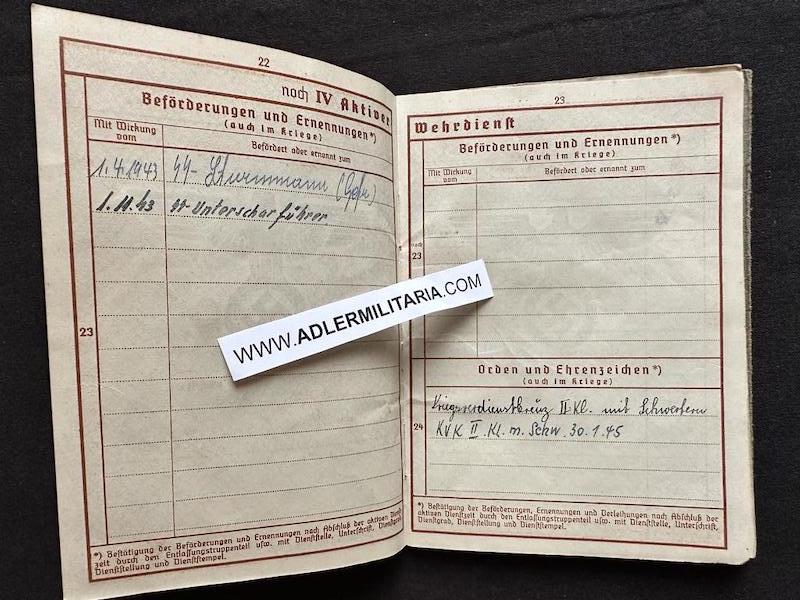 22
noch IV Aktiver
Beförderungen und Ernennungen*)
(auch im Kriege)
Mit Wirkung vom
Befördert oder ernannt zum
1.4.1943 SS-Sturmmann
1.11.43 SS-Unterscharführer
23
*) Bestätigung der Beförderungen und Ernennungen nach Abschluß der aktiven Dienst-
zeit durch den Entlassungstruppenteil usw. mit Dienststelle, Unterschrift, Dienstgrad,
Dienststellung und Dienststempel.
WWW.ADLERMILITARIA.COM
23
Wehrdienst
Beförderungen und Ernennungen*)
(auch im Kriege)
Mit Wirkung vom
Befördert oder ernannt zum
noch
23
Orden und Ehrenzeichen*)
(auch im Kriege)
Kriegsverdienstkreuz II. Kl. mit Schwertern
24 KVK II. Kl. m. Schw. 30.1.45
*) Bestätigung der Beförderungen, Ernennungen und Verleihungen nach Abschluß der
aktiven Dienstzeit durch den Entlassungstruppenteil usw. mit Dienststelle, Unterschrift,
Dienstgrad, Dienststellung und Dienststempel.